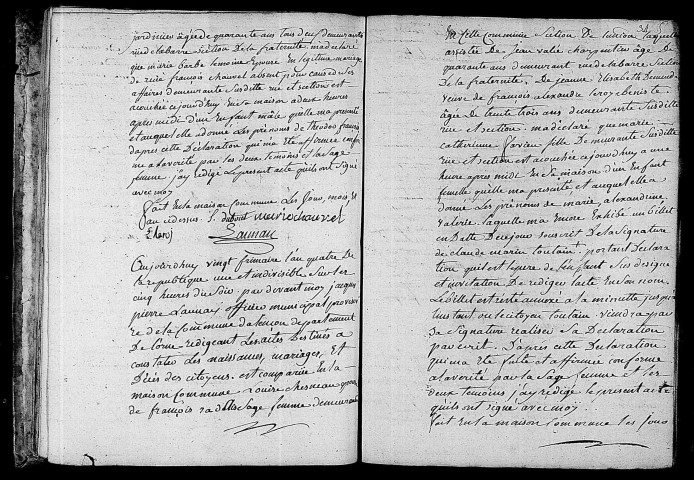 jardinier agé de quarante ans tais deux demeurants
rue de labarre Section De la fraternité. ma declaré
que marie barbe Lemoine Epouse En legitime mariage
de rené françois chauvel absent pour cause de Ses
affaires demeurante Susditte rue et Section est
acouchée cejourdhuy En Sa maison a deux heures
après midi d'un En fant mâle quelle ma presenté
et auquel elle a donné Les prenoms de theodore françois
d'apres cette Declaration qui ma Eté affirmée conforme
a la verité par les deux temoins et la Sage
femme j'ay redigé Le present acte quils ont Signé
avec moy
fait En la maison Commune Les jours, mois, et
an cidessus.
Launay
Cejourdhuy vingt frimaire l'an quatre De
la republique une et indivisible Sur les
cinq heures du Soir. par devant moy jacques
pierre Launay officier municipal provisoi
re de la Commune d'alencon departement
De l'orne redigeant Les actes Destinés a
constater Les naissances, mariages, Et
Décès des citoyens. est comparüe En la
maison Commune Louise chesneau
de françois Sage femme demeurante
En cette commune Section De Laquelle
assistée de Jean charpentier âgé de
quarante ans demeurant rue de labarre Section
De la fraternité. De jeanne Elisabeth
veuve de françois alexandre Leroy
âgée de trente trois ans demeurante Susditte
rue et Section. ma declaré que marie
catherinne fille De meurante Susditte
rue et Section est acouchée cejourdhuy a une
heure après midi En Sa maison d'un Enfant
femelle quelle ma presenté et auquel elle a
donné Les prenoms de marie, alexandrine,
Valerie. Laquelle ma Encore Exhibé un billet
en Datte De ce jour Souscrit De la Signature
de claude marie toutain. portant Declara
tion quil est le pere de l'enfant Sus designé
et invitation De rediger l'acte En Son nom.
Le billet est resté annexé a la minutte jusqua
linstant ou le citoyen toutain viendra par
Sa Signature realiser Sa Declaration
par écrit. D'après cette Declaration
qui ma Eté faitte et affirmée conforme
a la verité par la Sage femme et les
deux temoins j'ay redigé le present acte
quils ont Signé avec moy.
fait En la maison Commune les jours